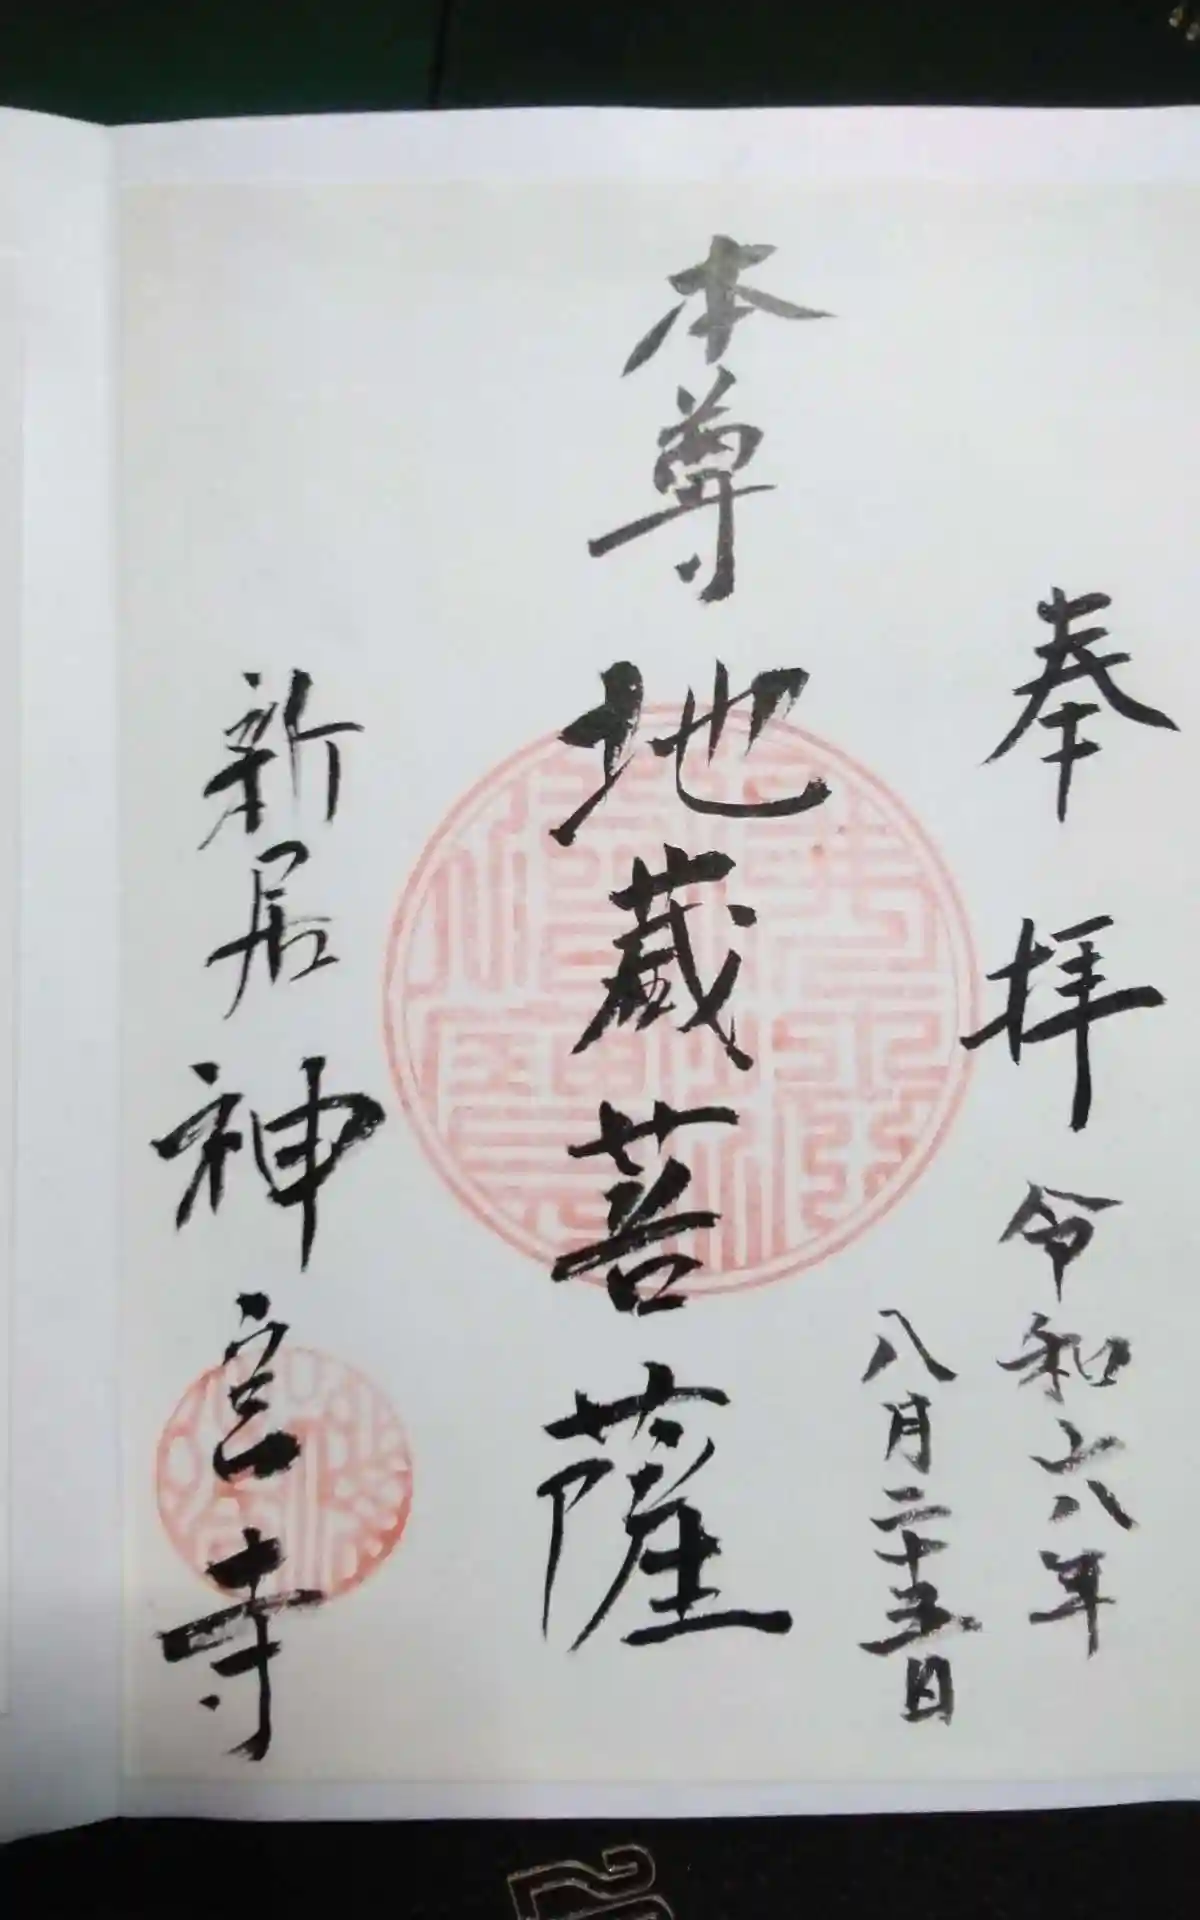 奉拝 令和六年
八月二十五日
本尊 地蔵菩薩
新居 神宮寺